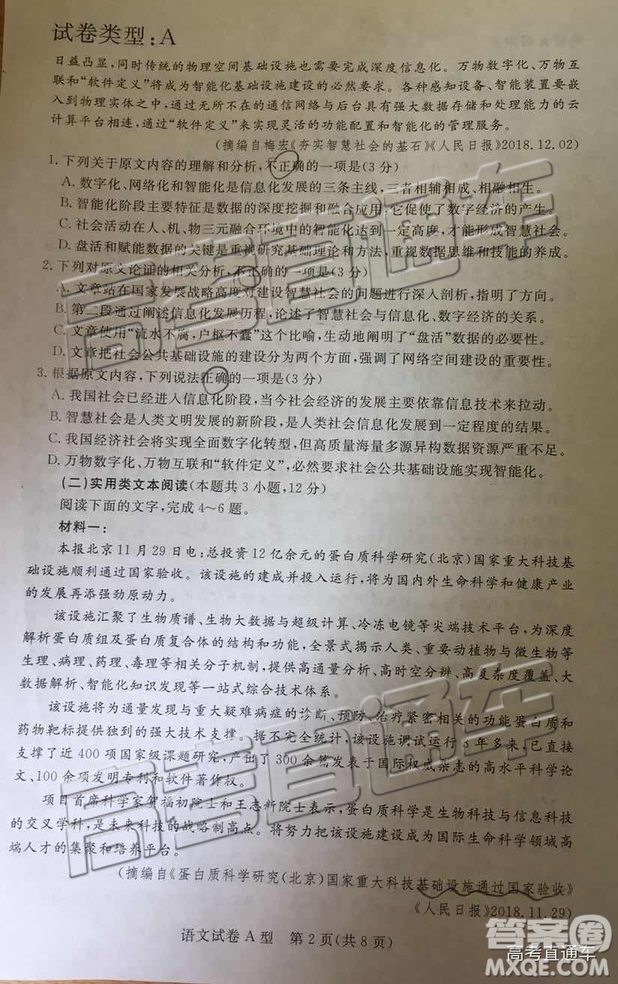 试卷类型:A
日益凸显,同时传统的物理空间基础设施也需要完成深度信息化。万物数字化、万物互
联和“软件定义”将成为智能化基础设施建设的必然要求。各种感知设备、智能装置要嵌
入到物理实体之中,通过无所不在的通信网络与后台具有强大数据存储和处理能力的云
计算平台相连,通过“软件定义”来实现灵活的功能配置和智能化的管理服务。
(摘编自梅宏《夯实智慧社会的基石》《人民日报》2018.12.02)
1.下列关于原文内容的理解和分析,不正确的一项是(3分)
A.数字化、网络化和智能化是信息化发展的三条主线,三者相辅相成、相融相生。
B.智能化阶段主要特征是数据的深度挖掘和融合应用,它促使了数字经济的产生。
C.社会活动在人、机、物三元融合环境中的智能化运行达到一定高度,才能形成智慧社会。
D.盘活和赋能数据的关键是重视研究基础理论和方法,重视数据思维和技能的养成。
2.下列对原文论证的相关分析,不正确的一项是(3分)
A.文章站在国家发展战略高度对建设智慧社会的问题进行深入剖析,指明了方向。
B.第二段通过阐述信息化发展历程,论述了智慧社会与信息化、数字经济的关系。
C.文章使用“流水不腐,户枢不蠹”这个比喻,生动地阐明了“盘活”数据的必要性。
D.文章把社会公共基础设施的建设分为两个方面,强调了网络空间建设的重要性。
3.根据原文内容,下列说法正确的一项是(3分)
A.我国社会已经进入信息化阶段,当今社会经济的发展主要依靠信息技术来拉动。
B.智慧社会是人类文明发展的新阶段,是人类社会信息化发展到一定程度的结果。
C.我国经济社会将实现全面数字化转型,但高质量海量多源异构数据资源严重不足。
D.万物数字化、万物互联和“软件定义”,必然要求社会公共基础设施实现智能化。
(二)实用类文本阅读(本题共3小题,12分)
阅读下面的文字,完成4~6题。
材料一:
本报北京11月29日电:总投资12亿余元的蛋白质科学研究(北京)国家重大科技基
础设施顺利通过国家验收。该设施的建成并投入运行,将为国内外生命科学和健康产业
的发展再添强劲原动力。
该设施汇聚了生物质谱、生物大数据与超级计算、冷冻电镜等尖端技术平台,为深度
解析蛋白质组及蛋白质复合体的结构和功能,全景式揭示人类、重要动植物与微生物等
生理、病理、药理、毒理等相关分子机制,提供高通量分析、高时空分辨、高复杂度覆盖、大
数据解析、智能化知识发现等一站式综合技术体系。
该设施将为通量发现与重大疑难病症的诊断、预防、治疗紧密相关的功能蛋白质和
药物靶标提供独一无二的强大技术支撑。据不完全统计,该设施调试运行3年多来,已直接
支撑了近400项国家级课题研究,产出了300余篇发表于国际权威杂志的高水平科学论
文、100余项发明专利和软件著作权。
项目首席科学家贺福初院士和王志新院士表示,蛋白质科学是生物科技与信息科技
的交叉学科,是未来科技的战略制高点。将努力把该设施建设成为国际生命科学领域高
端人才的集聚和培养平台。
(摘编自《蛋白质科学研究(北京)国家重大科技基础设施通过国家验收》
《人民日报》2018.11.29)
语文试卷A型 第2页(共8页)
高考直通车
高考直通车
高考直通车
答案圈
MXQE.COM